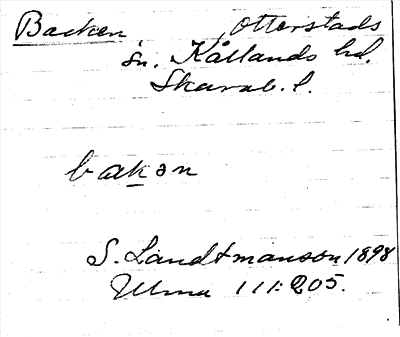 Backen, Otterstads
sn. Kållands hd.
Skarab. l.
bakən
S. Landtmanson 1898
Ulma 111:205.